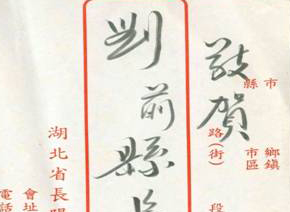 市 鄉鎮
縣 市區
路(街 段
敬賀
劉前縣長
湖北省長陽
會址
電話